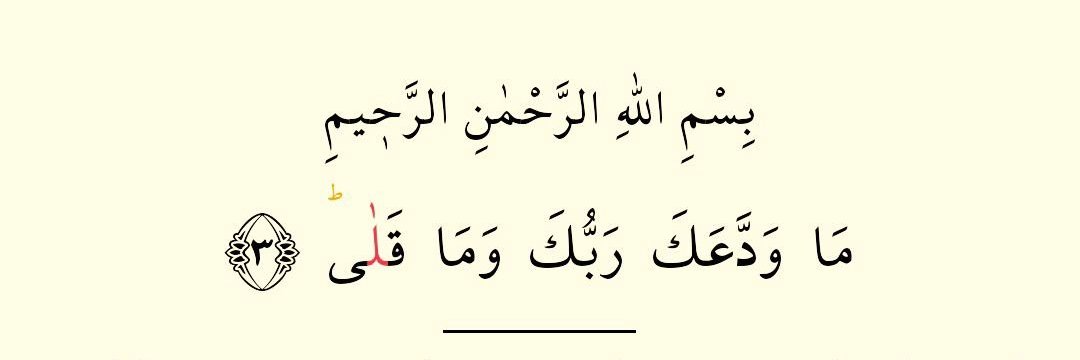 بِسْمِ اللهِ الرَّحْمٰنِ الرَّحِيمِ
مَا وَدَّعَكَ رَبُّكَ وَمَا قَلٰىؕ ‏﴿٣﴾